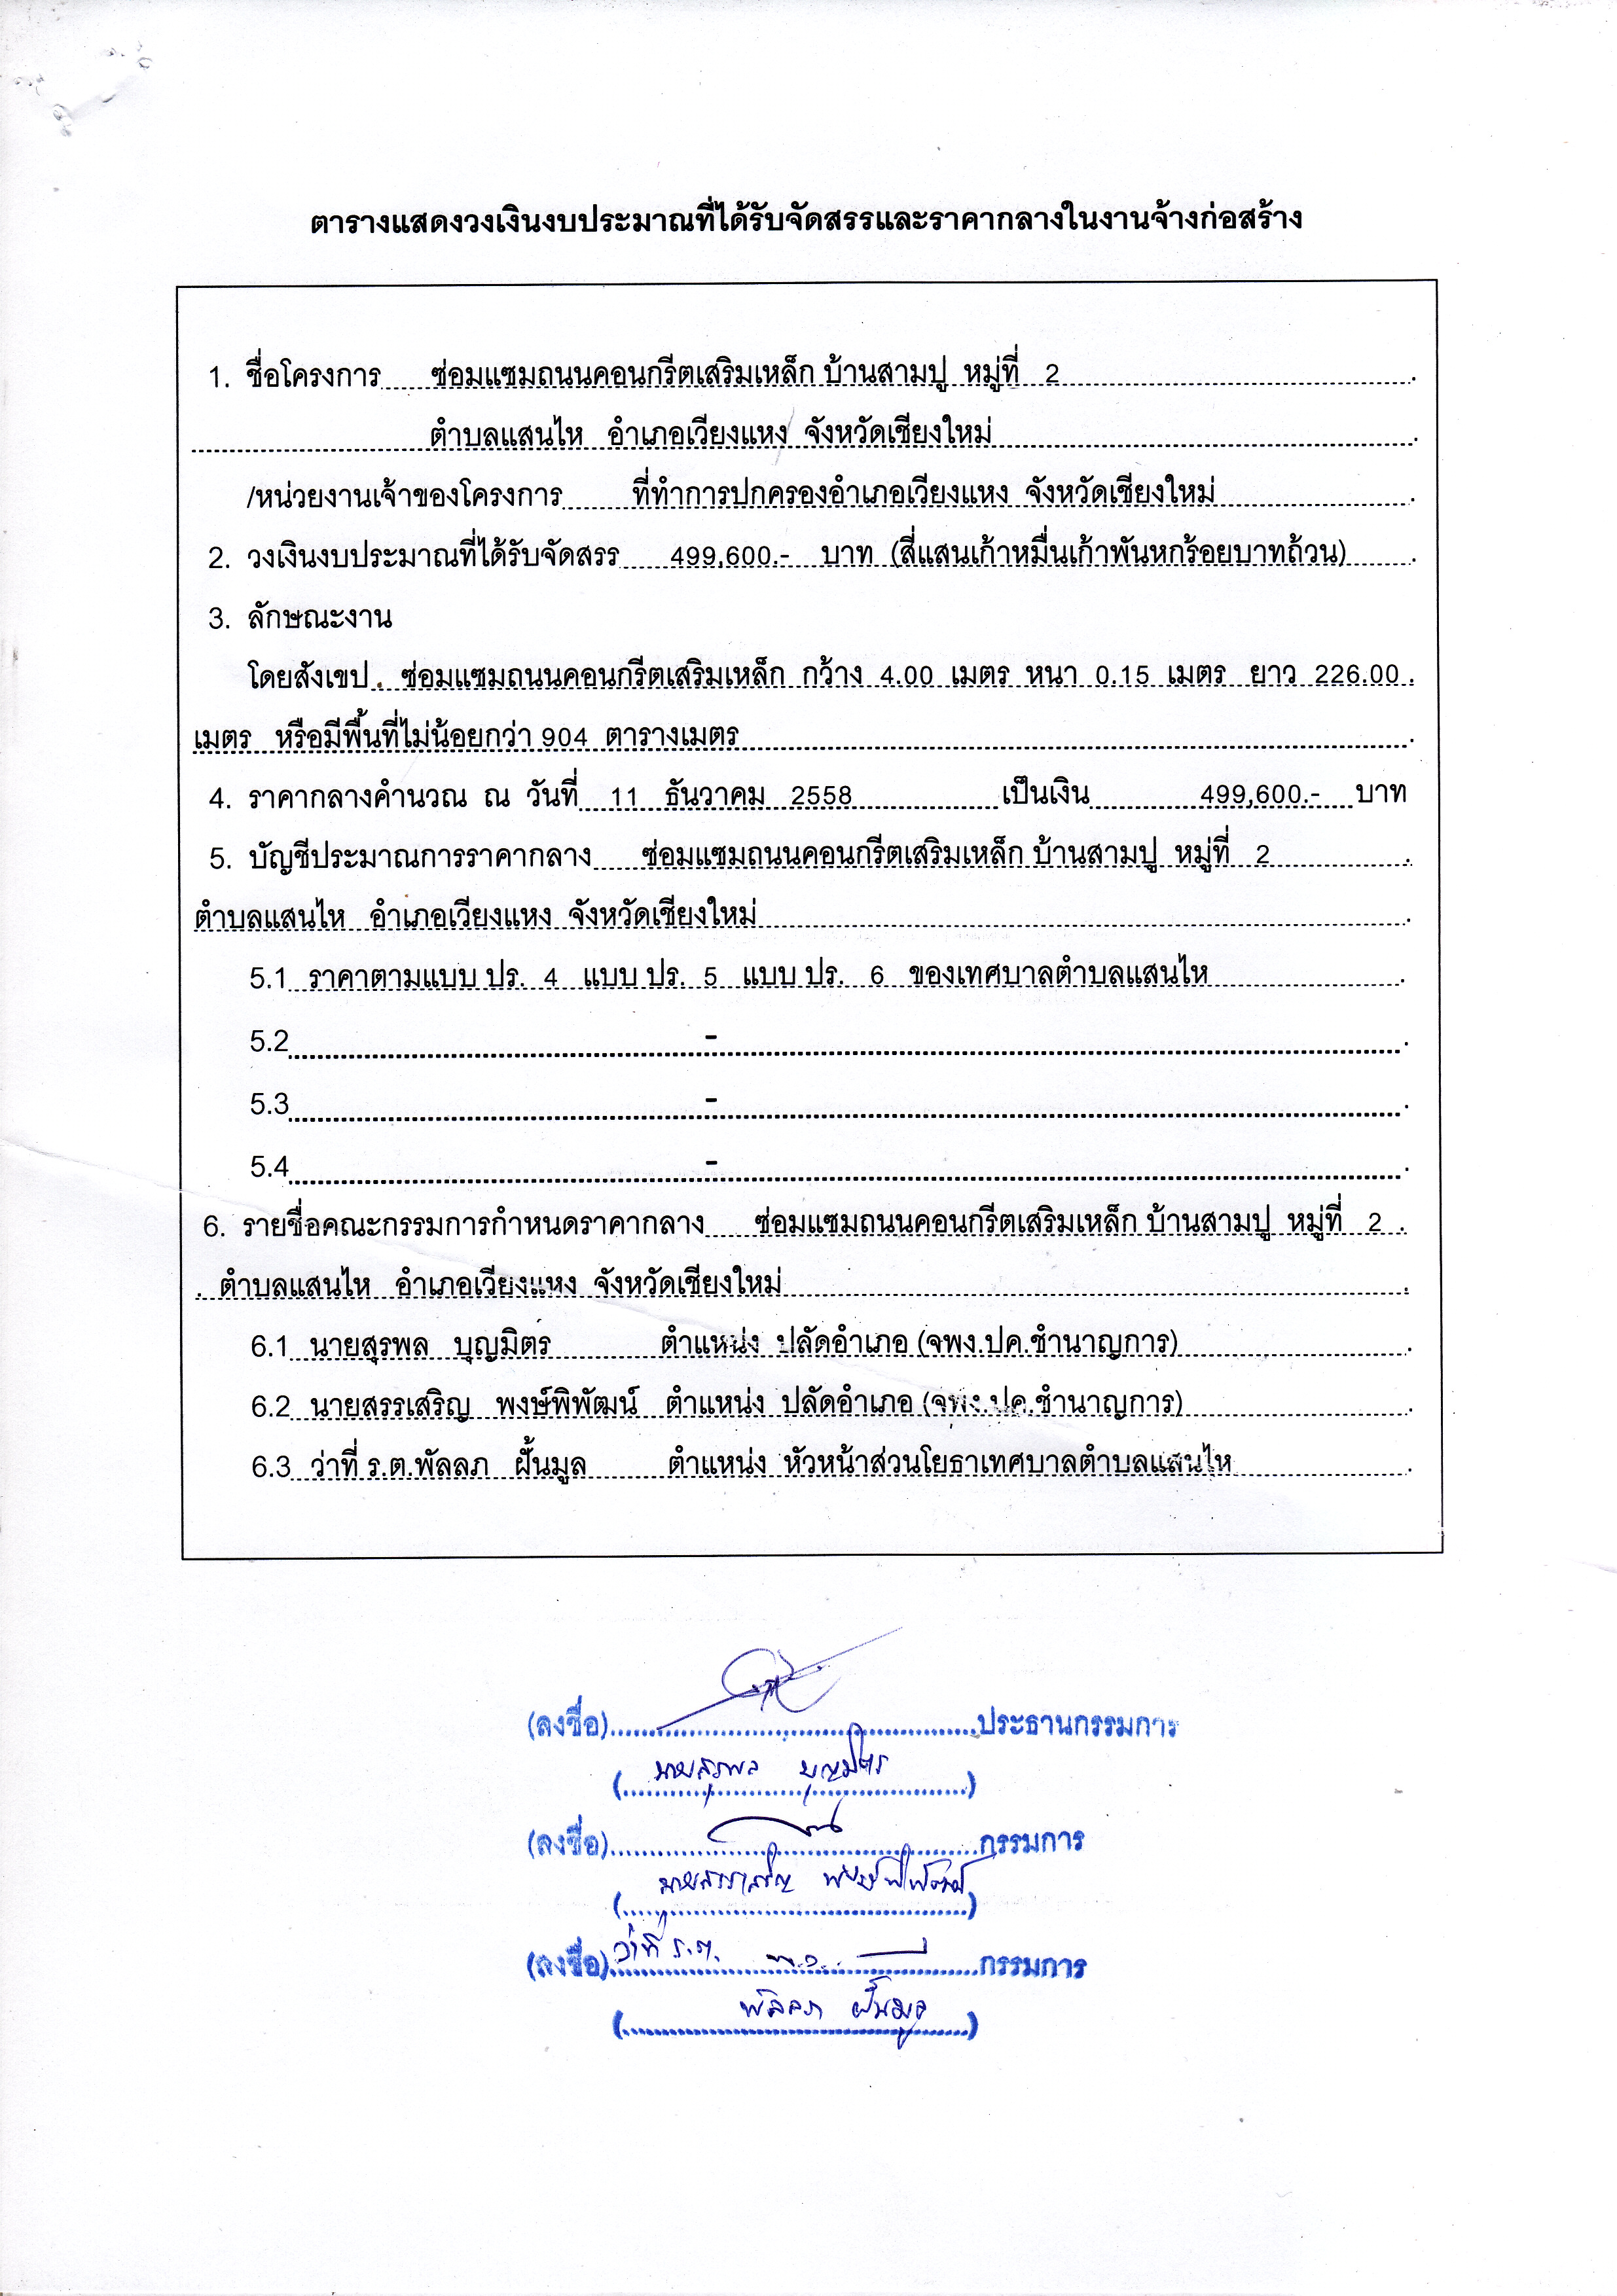 ตารางแสดงวงเงินงบประมาณที่ได้รับจัดสรรและราคากลางในงานจ้างก่อสร้าง
1. ชื่อโครงการ ซ่อมแซมถนนคอนกรีตเสริมเหล็ก บ้านสามปู หมู่ที่ 2
ตำบลแสนไห อำเภอเวียงแหง จังหวัดเชียงใหม่
/หน่วยงานเจ้าของโครงการ ที่ทำการปกครองอำเภอเวียงแหง จังหวัดเชียงใหม่
2. วงเงินงบประมาณที่ได้รับจัดสรร 499,600.- บาท (สี่แสนเก้าหมื่นเก้าพันหกร้อยบาทถ้วน)
3. ลักษณะงาน
โดยสังเขป ซ่อมแซมถนนคอนกรีตเสริมเหล็ก กว้าง 4.00 เมตร หนา 0.15 เมตร ยาว 226.00
เมตร หรือมีพื้นที่ไม่น้อยกว่า 904 ตารางเมตร
4. ราคากลางคำนวณ ณ วันที่ 11 ธันวาคม 2558 เป็นเงิน 499,600.- บาท
5. บัญชีประมาณการราคากลาง ซ่อมแซมถนนคอนกรีตเสริมเหล็ก บ้านสามปู หมู่ที่ 2
ตำบลแสนไห อำเภอเวียงแหง จังหวัดเชียงใหม่
5.1 ราคาตามแบบ ปร. 4 แบบ ปร. 5 แบบ ปร. 6 ของเทศบาลตำบลแสนไห
5.2 -
5.3 -
5.4 -
6. รายชื่อคณะกรรมการกำหนดราคากลาง ซ่อมแซมถนนคอนกรีตเสริมเหล็ก บ้านสามปู หมู่ที่ 2
ตำบลแสนไห อำเภอเวียงแหง จังหวัดเชียงใหม่
6.1 นายสุรพล บุญมิตร ตำแหน่ง ปลัดอำเภอ (จพง.ปค.ชำนาญการ)
6.2 นายสรรเสริญ พงษ์พิพัฒน์ ตำแหน่ง ปลัดอำเภอ (จพง.ปค.ชำนาญการ)
6.3 ว่าที่ ร.ต.พัลลภ ฝั้นมูล ตำแหน่ง หัวหน้าส่วนโยธาเทศบาลตำบลแสนไห
(ลงชื่อ) ประธานกรรมการ
(นายสุรพล บุญมิตร)
(ลงชื่อ) กรรมการ
(นายสรรเสริญ พงษ์พิพัฒน์)
(ลงชื่อ) ว่าที่ ร.ต. กรรมการ
(พัลลภ ฝั้นมูล)